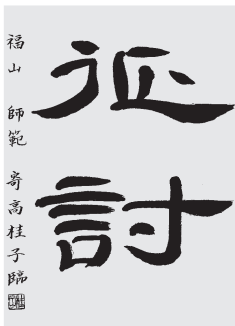 征討
福山 師範 寄高桂子臨